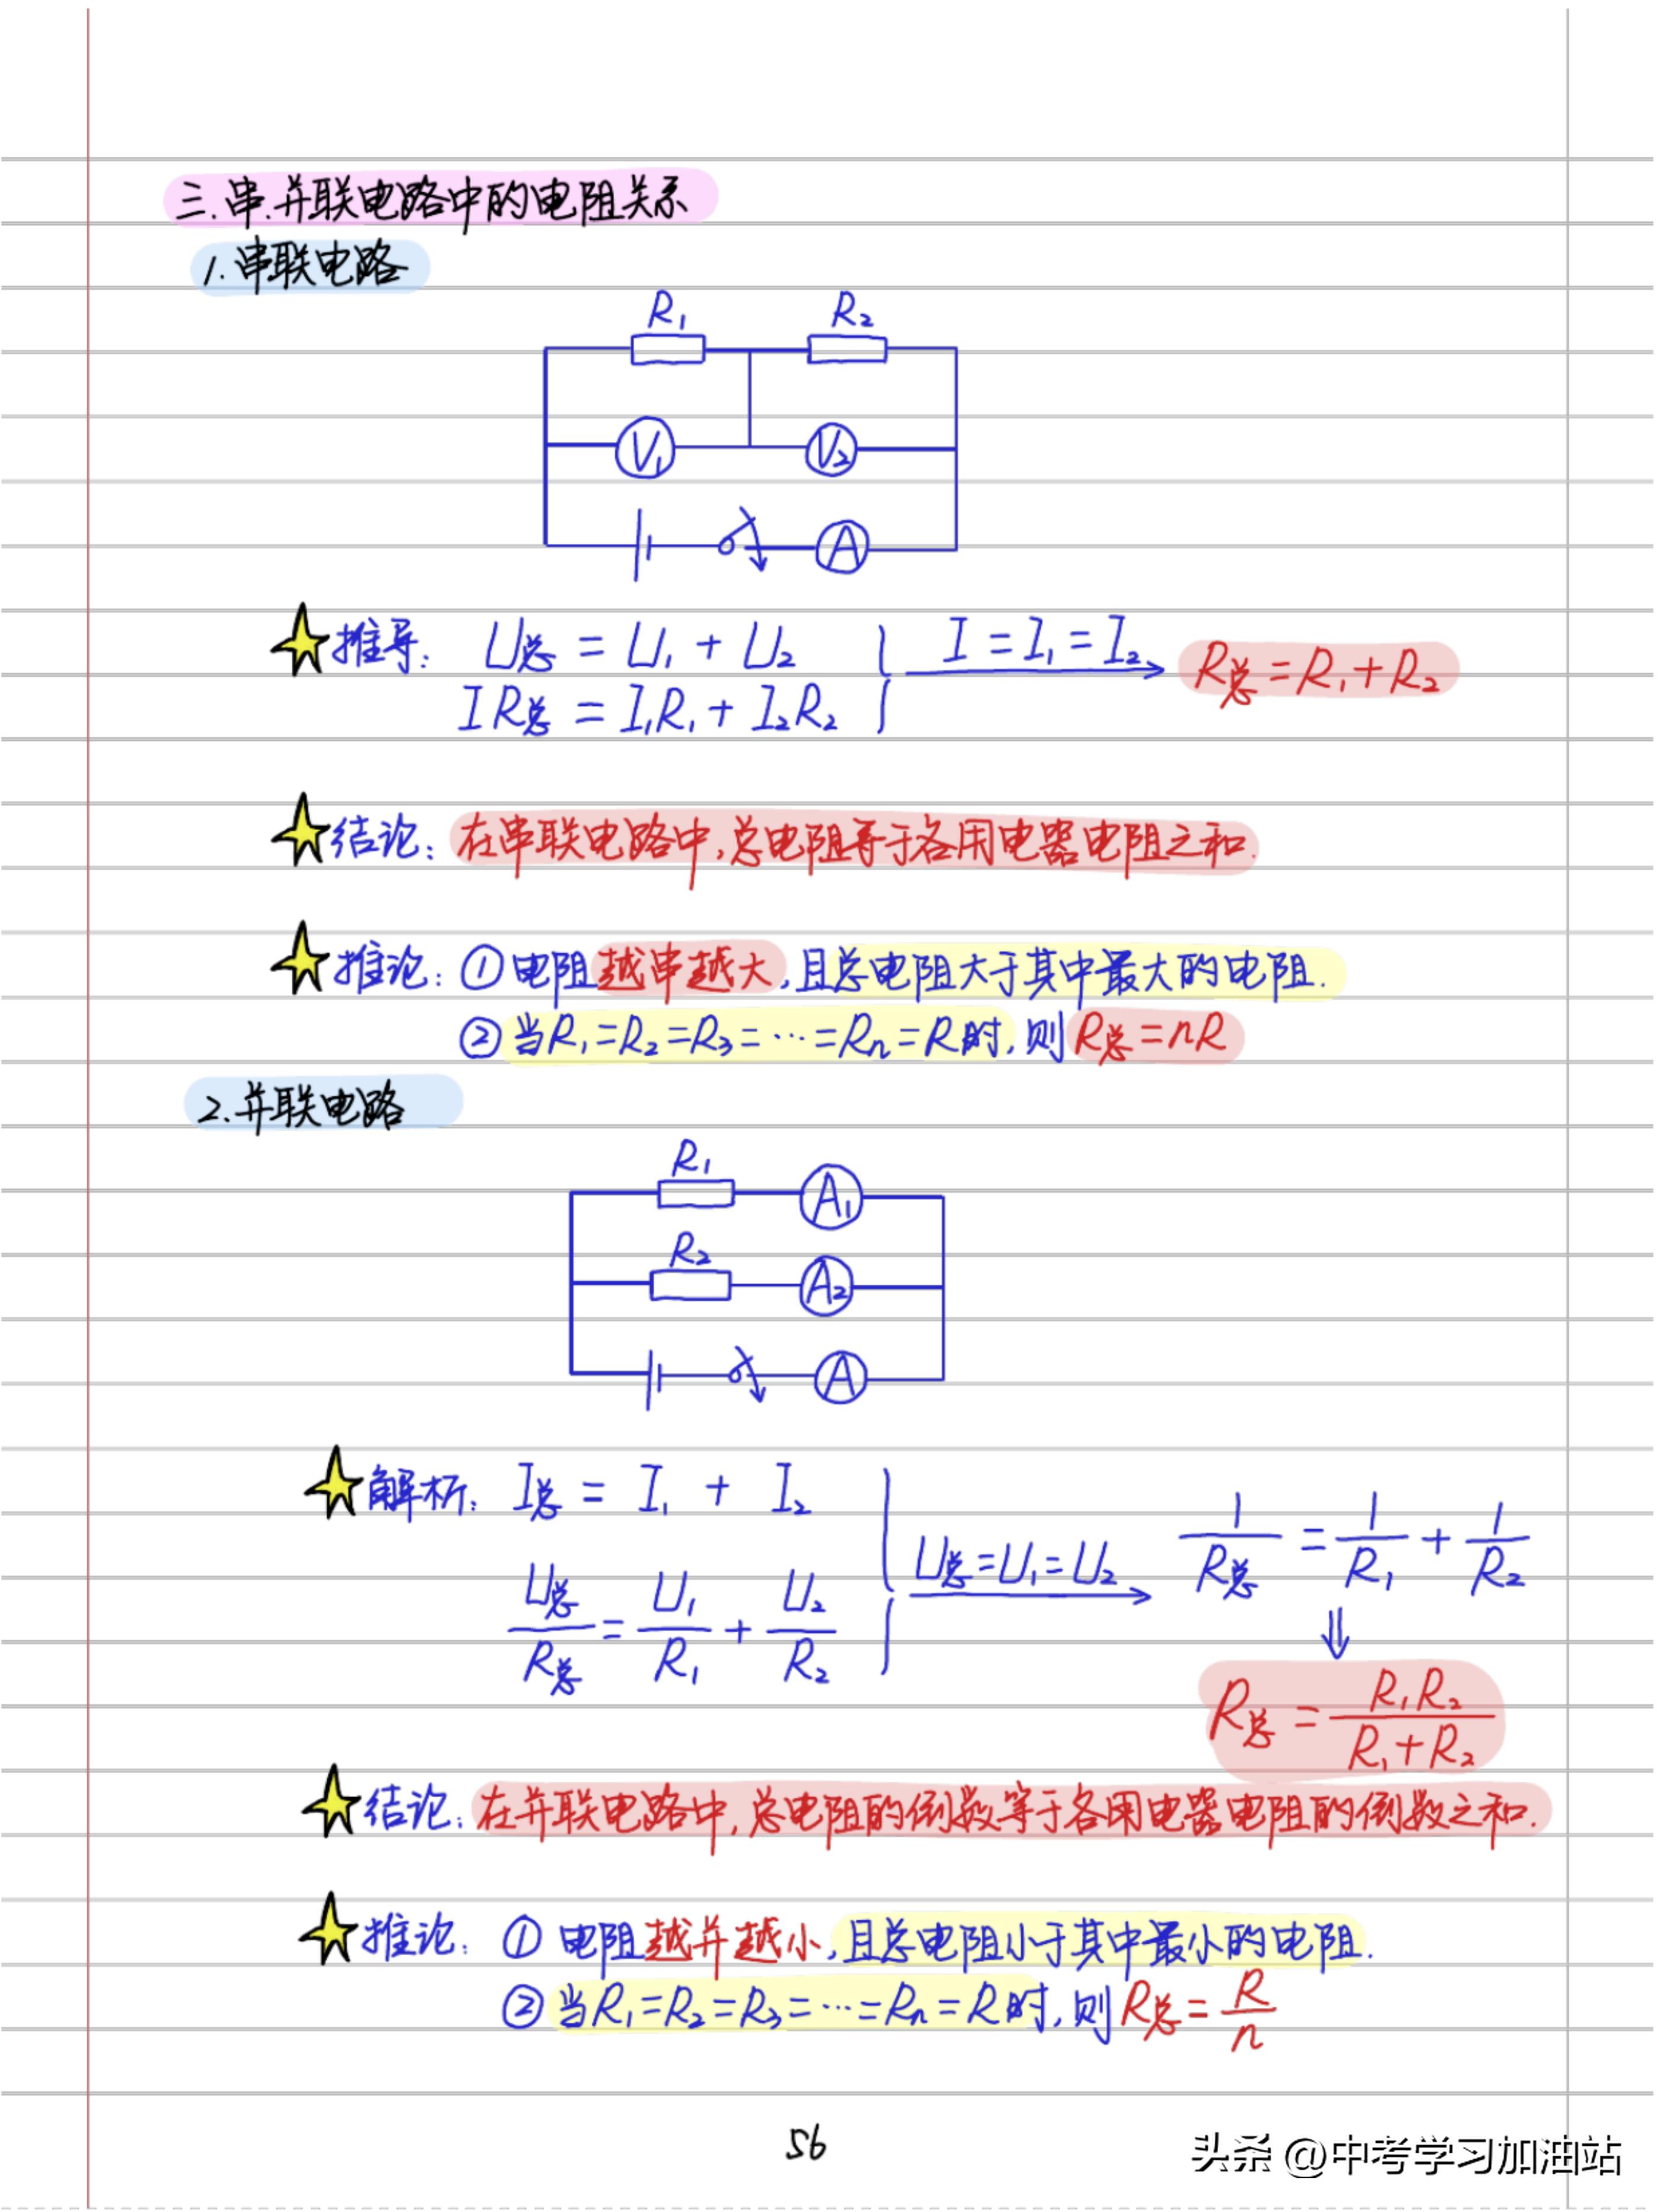 三.串.并联电路中的电阻关系
1.串联电路
R₁ R₂
V₁ V₂
A
推导: U总 = U₁ + U₂ I = I₁ = I₂ R总 = R₁ + R₂
IR总 = I₁R₁ + I₂R₂
结论: 在串联电路中,总电阻等于各用电器电阻之和.
推论: ①电阻越串越大,且总电阻大于其中最大的电阻.
②当R₁=R₂=R₃=…=Rn=R时,则R总=nR
2.并联电路
R₁ A₁
R₂ A₂
A
解析: I总 = I₁ + I₂
U总/R总 = U₁/R₁ + U₂/R₂ U总=U₁=U₂ 1/R总 = 1/R₁ + 1/R₂
⇓
R总 = R₁R₂/(R₁+R₂)
结论: 在并联电路中,总电阻的倒数等于各用电器电阻的倒数之和.
推论: ①电阻越并越小,且总电阻小于其中最小的电阻.
②当R₁=R₂=R₃=…=Rn=R时,则R总=R/n
56
头条 @中考学习加油站